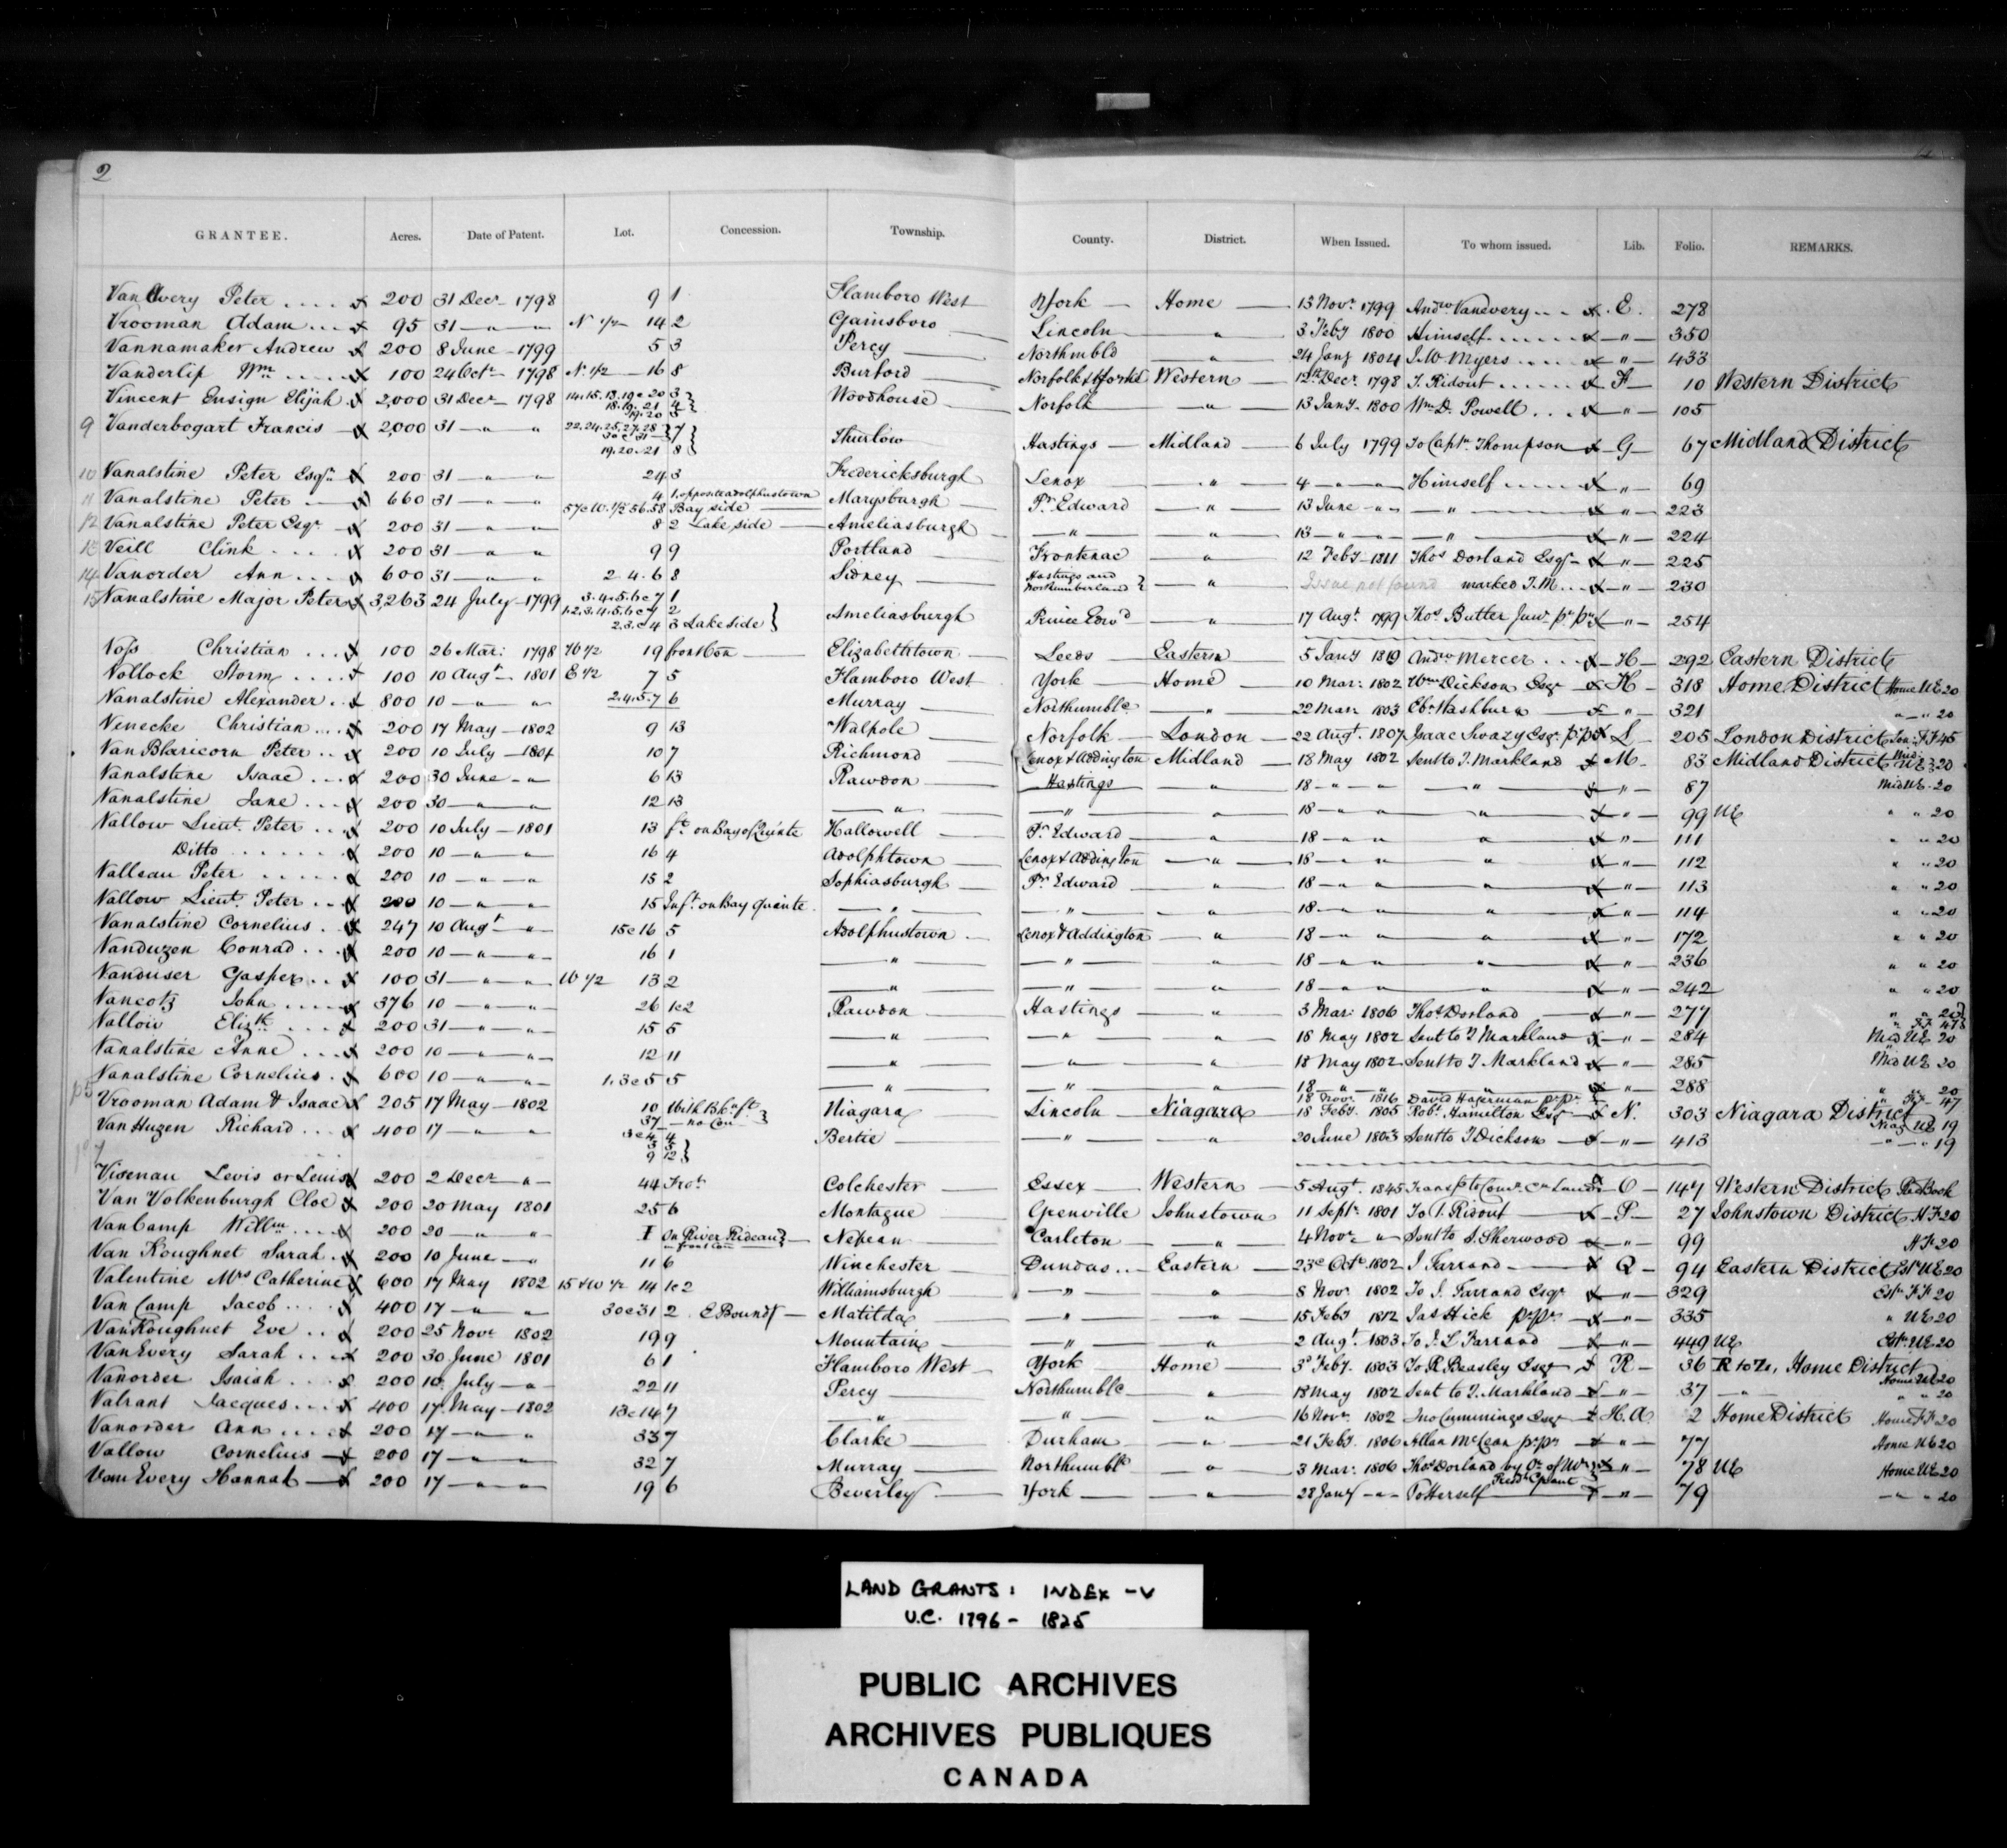 2
GRANTEE. Acres. Date of Patent. Lot. Concession. Township. County. District. When Issued. To whom issued. Lib. Folio. REMARKS.
VanAvery Peter .... 200 31 Decr 1798 9 1 Flamboro West York Home 13 Novr 1799 Andw Vanevery E. 278
Vrooman Adam ... 95 31 " " N 1/2 14 2 Gainsboro Lincoln " 3 Feby 1800 Himself " 350
Vannamaker Andrew 200 8 June 1799 5 3 Percy Northmbld " 24 Jany 1804 J. W. Myers " 433
Vanderlip Wm 100 24 Octr 1798 N. 1/2 16 8 Burford Norfolk & Yorke Western 12th Decr 1798 T. Ridout F 10 Western District
Vincent Ensign Elijah 2,000 31 Decr 1798 14.15.18.19 & 20 3 } Woodhouse Norfolk " 13 Jany 1800 Wm D. Powell " 105
18.19.21 4 }
19.20 5
9 Vanderbogart Francis 2,000 31 " " 22.24.25.27.28 } 7 } Thurlow Hastings Midland 6 July 1799 To Captn Thompson G 67 Midland District
30 & 31
19.20.21 8 }
10 Vanalstine Peter Esqr 200 31 " " 24 3 Fredericksburgh Lenox " 4 " " Himself " 69
11 Vanalstine Peter 660 31 " " 4 1, opposite adolphustown Marysburgh Pr Edward " 13 June " " " " 223
57 & W. 1/2 56.58 Bay side
12 Vanalstine Peter Esqr 200 31 " " 8 2 Lake side Ameliasburgh " " 13 " " " " " 224
13 Veill Clink 200 31 " " 9 9 Portland Frontenac " 12 Feby 1811 Thos Dorland Esqr " 225
14 Vanorder Ann 600 31 " " 2.4.6 8 Sidney Hastings and Northumberland } " Issue not found marked T.M. " 230
15 Vanalstine Major Peter 3,263 24 July 1799 3.4.5.6 & 7 1 Ameliasburgh Prince Edwd " 17 Augt 1799 Thos Butter Junr pr pr " 254
1.2.3.4.5.6 & 7 2
2.3. & 4 3 Lake side }
Voss Christian 100 26 Mar: 1798 W 1/2 19 front Con Elizabethtown Leeds Eastern 5 Jany 1819 Andw Mercer H 292 Eastern District
Vollock Storm 100 10 Augt 1801 E 1/2 7 5 Flamboro West York Home 10 Mar: 1802 Wm Dickson Esqr K 318 Home District Home UE 20
Vanalstine Alexander 800 10 " " 2.4.5.7 6 Murray Northumble " 22 Mar: 1803 Eb. Washburn " 321 " " 20
Venecke Christian 200 17 May 1802 9 13 Walpole Norfolk London 22 Augt 1807 Isaac Swazy Esqr pr pr L 205 London District Lon: FF 45
Van Blaricorn Peter 200 10 July 1801 10 7 Richmond Lenox & Addington Midland 18 May 1802 Sent to T. Markland M 83 Midland District Mid: UE 20
Vanalstine Isaac 200 30 June " 6 13 Rawdon Hastings " 18 " " " " 87 Mid UE 20
Vanalstine Jane 200 30 " " 12 13 " " " 18 " " " " 99 UE " " 20
Vallow Lieut. Peter 200 10 July 1801 13 ft on Bay of Quinte Hallowell Pr Edward " 18 " " " " 111 " " 20
Ditto 200 10 " " 16 4 Adolphtown Lenox & Addington " 18 " " " " 112 " " 20
Valleau Peter 200 10 " " 15 2 Sophiasburgh Pr Edward " 18 " " " " 113 " " 20
Vallow Lieut. Peter 200 10 " " 15 In ft on Bay Quinte " " " 18 " " " " 114 " " 20
Vanalstine Cornelius 247 10 Augt " 15 & 16 5 Adolphustown Lenox & Addington " 18 " " " " 172 " " 20
Vanduzen Conrad 200 10 " " 16 1 " " " 18 " " " " 236 " " 20
Vanduser Gasper 100 31 " " W 1/2 13 2 " " " 18 " " " " 242 " " 20
Vancotz John 376 10 " " 26 1 & 2 Rawdon Hastings " 3 Mar: 1806 Thos Dorland " 277
Vallow Elizth 200 31 " " 15 5 " " " 18 May 1802 Sent to T Markland " 284 Mid UE 20
Vanalstine Anne 200 10 " " 12 11 " " " 18 May 1802 Sent to T. Markland " 285 Mid UE 20
Vanalstine Cornelius 600 10 " " 1.3 & 5 5 " " " 18 " " " " 288 " " 20
p5 Vrooman Adam & Isaac 205 17 May 1802 10 With Bk nft } Niagara Lincoln Niagara 18 Novr 1816 David Hagerman pr pr N. 303 Niagara District
37 no Con 18 Feby 1805 Robt Hamilton Esqr
Van Huzen Richard 400 17 " " 3 & 4 4 Bertie " " 20 June 1803 Sent to T Dickson " 413 " " 19
3 5
9 12 }
Visenau Levis or Lewis 200 2 Decr " 44 Frot Colchester Essex Western 5 Augt 1845 O 147 Western District
Van Volkenburgh Cloe 200 20 May 1801 25 6 Montague Grenville Johnstown 11 Septr 1801 To T. Ridout P 27 Johnstown District
Van Camp Willm 200 20 " " I On River Rideau } Nepean Carleton " 4 Novr " Sent to S. Sherwood " 99
in front Con
Van Koughnet Sarah 200 10 June " 11 6 Winchester Dundas Eastern 23d Octr 1802 J Farrand Q 94 Eastern District Est UE 20
Valentine Mrs Catherine 600 17 May 1802 15 & W 1/2 14 1 & 2 Williamsburgh " " 8 Novr 1802 To J. Farrand Esqr " 329
Van Camp Jacob 400 17 " " 30 & 31 2 E Boundy Matilda " " 15 Feby 1812 Jas Hick pr pr " 335 " UE 20
Van Koughnet Eve 200 25 Novr 1802 19 9 Mountain " " 2 Augt 1803 To J. L Farrand " 449 UE Est UE 20
Van Every Sarah 200 30 June 1801 6 1 Flamboro West York Home 3d Feby. 1803 To R Beasley Esqr R 36 R to Z, Home District
Vanorder Isaiah 200 10 July " 22 11 Percy Northumble " 18 May 1802 Sent to T. Markland " 37 Home UE 20
Valrant Jacques 400 17 May 1802 13 & 14 7 " " " 16 Novr 1802 Jno Cummings Esqr H. A 2 Home District
Vanorder Ann 200 17 " " 33 7 Clarke Durham " 21 Feby. 1806 Allan McLean pr pr " 77 Home UE 20
Vallow Cornelius 200 17 " " 32 7 Murray Northumbld " 3 Mar: 1806 Thos Dorland " 78 UE Home UE 20
Van Every Hannah 200 17 " " 19 6 Beverley York " 28 Jany " To Herself " 79 " " 20
LAND GRANTS: INDEX -V
U.C. 1796 - 1825
PUBLIC ARCHIVES
ARCHIVES PUBLIQUES
CANADA